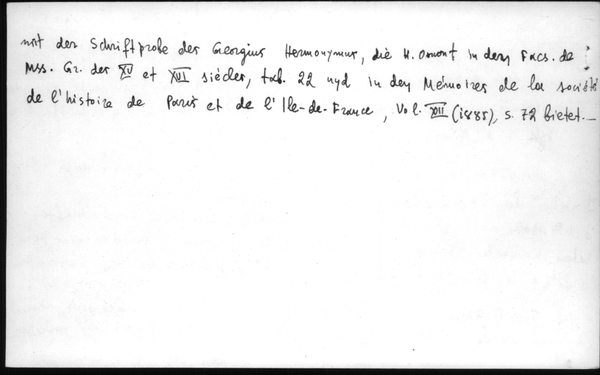 mit der Schriftprobe des Georgius Hermonymus, die H. Omont in den Facs. de
Mss. Gr. des XV et XVI siècles, tab. 22 und in den Mémoires de la société
de l'histoire de Paris et de l'Ile-de-France, Vol. XII (1885), S. 72 bietet.—